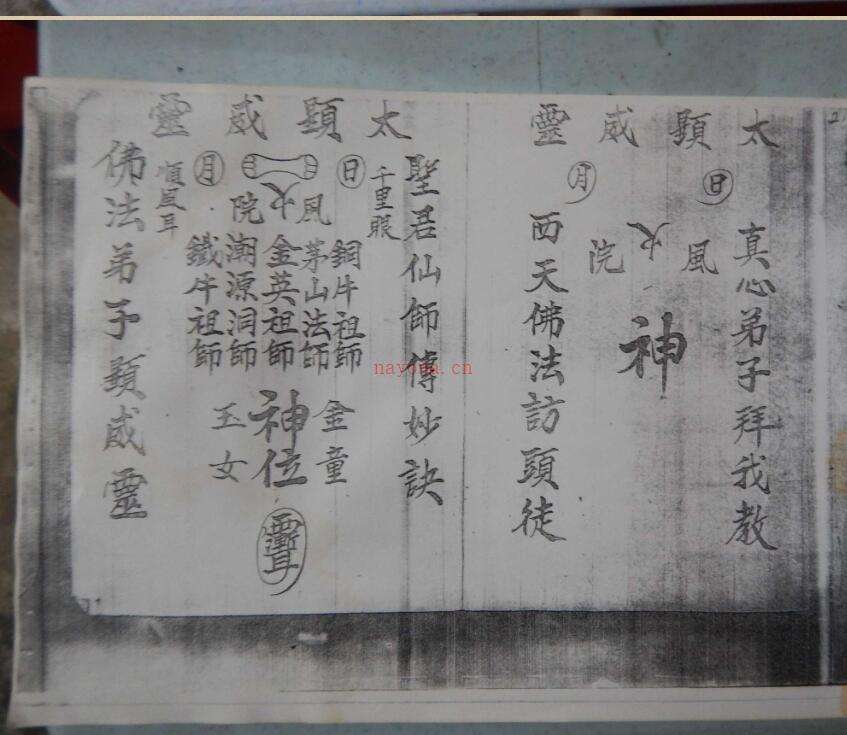 太顯威靈
日
月
真心弟子拜我教
風火院
神
西天佛法訪頭徒
太顯威靈
聖君仙師傳妙訣
千里眼
日
月
順風耳
風火院
銅牛祖師
茅山法師
金英祖師
潮源洞師
鐵牛祖師
金童
神位
玉女
佛法弟子顯威靈
nayona.cn
2